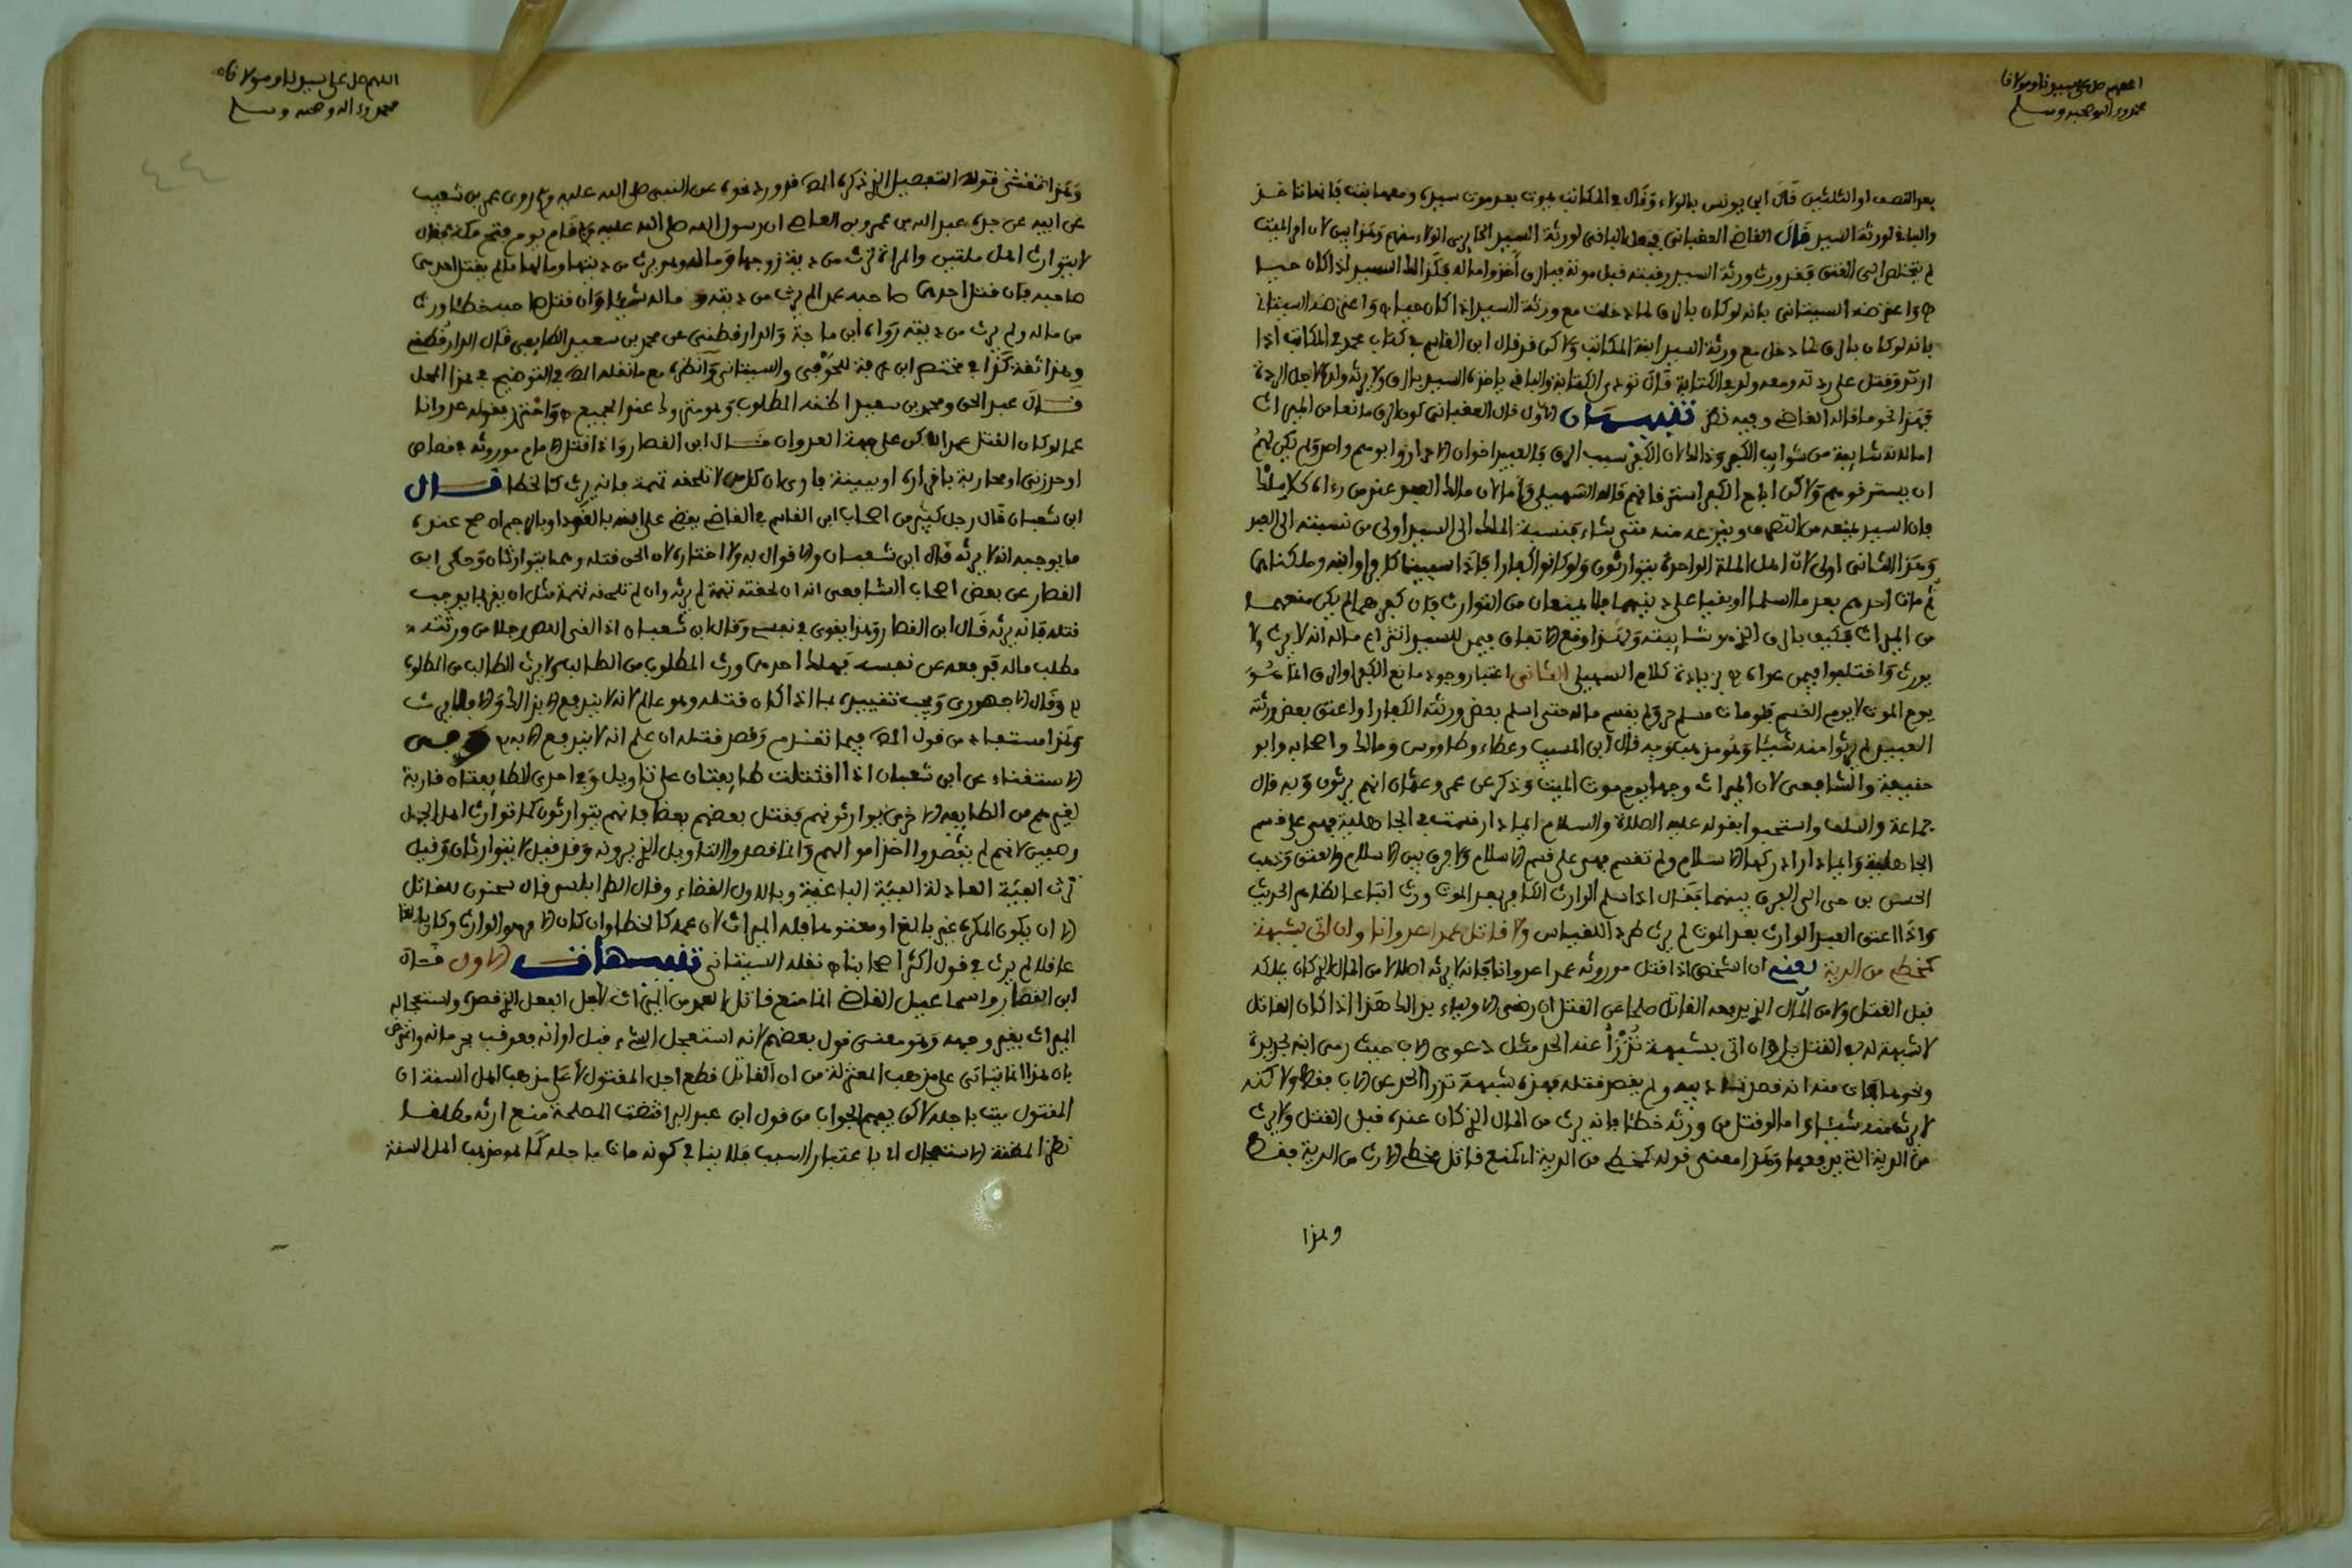 اللهم صل على سيدنا ومولانا
محمد وءاله وصحبه وسلم
بعد النصف او الثلثين قال ابن يونس بالولاء وقال في المكاتب يموت بعد موت سيده ومعه ابنته فانها تاخذ
والباقي لورثة السيد قال القاضي العقباني فجعل الباقي لورثة السيد انما يرى الولاء منهم وهذا بين لان ام الميت
لم يتخلص الى العتق فقد ورث ورثة السيد رقبته قبل موته فبالرق أخذوا ماله فكذلك السيد اذا كان حيا
واعترضه السيتاني بانه لو كان بالرق لما دخلت مع ورثة السيد اذا كان حيا واعترضه السيتاني
بانه لو كان بالرق لما دخل مع ورثة السيد ابنة المكاتب ولاكن قد قال ابن القاسم في كتاب محمد في المكاتب اذا
ارتد وقتل على ردته ومعه ولد في الكتابة قال تؤدى الكتابة والباقي ياخذه السيد بالرق ولا يرثه ولده لاجل الردة
فهذا نحو ما قاله القاضي وفيه نظر تنبيهان الاول قال العقباني كون الرق مانعا من الميراث
اما لانه شايبة من شوايب الكفر وذلك لان الكفر سبب الرق والعبيد اخوان الاحرار وابوهم واحد ولم يكن لهم
ان يسترقوهم ولاكن اباح الكفر استرقاقهم قاله السهيلي واما لان مالك العبد عند من رءاه كلا ملك
فان السيد يمنعه من التصرف وينزعه منه متى شاء فنسبة الملك الى السيد اولى من نسبته الى العبد
وهذا الثاني اولى لان اهل الملة الواحدة يتوارثون ولو كانوا كفارا فاذا سبينا كافرا وابنه وملكناهم
ثم مات احدهم بعد ما اسلما او بقيا على دينهما فلا يمنعان من التوارث فان كفرهما لم يكن منعهما
من الميراث فكيف بالرق الذي هو شايبته ولهذا وقع الاتفاق فيمن للسيد انتزاع ماله انه لا يرث ولا
يورث واختلفوا فيمن عداه بزيادة كلام السهيلي الثاني اعتبار وجود مانع الكفر او الرق انما هو
يوم الموت لا يوم القسم فلو مات مسلم حر ولم يقسم ماله حتى اسلم بعض ورثته الكفار او اعتق بعض ورثته
العبيد لم يرثوا منه شيئا وهو مذهب وبه قال ابن المسيب وعطاء وطاووس ومالك واصحابه وابو
حنيفة والشافعي لان الميراث وجب يوم موت الميت وذكر عن عمر وعثمان انهم يرثون وبه قال
جماعة والسلف واستحبوا بقوله عليه الصلاة والسلام ايما دار قسمت في الجاهلية فهي على قسم
الجاهلية وايما دار ادركها الاسلام ولم تقسم فهي على قسم الاسلام ولا فرق بين الاسلام والعتق وذهب
الحسن بن حي الى الفرق بينهما فقال اذا اسلم الوارث الكافر بعد الموت ورث اتباعا لظاهر الحديث
واذا اعتق العبد الوارث بعد الموت لم يرث طردا للقياس ولا قاتل عمدا عدوانا وان اتى بشبهة
كمخطئ من الدية يعني ان الشخص اذا قتل موروثه عمدا عدوانا فانه لا يرثه اصلا لا من المال الذي كان يملكه
قبل القتل ولا من المال الذي يدفعه القاتل صلحا عن القتل ان رضي الاولياء بذالك هذا اذا كان القاتل
لا شبهة له في القتل بل وان اتى بشبهة تدرأ عنه الحد مثل دعوى الاب حيث رمى ابنه بحديدة
ونحوها فمات منه انه قصد تاديبه ولم يقصد قتله فهذه شبهة تدرأ الحد عن الاب فقط ولاكنه
لا يرثه منه شيئا واما لو قتل من ورثه خطئا فانه يرث من المال الذي كان عنده قبل القتل ولا يرث
من الدية التي يدفعها وهذا معنى قوله كمخطئ من الدية اي كمنع قاتل مخطئ الارث من الدية فقط
وهذا
اللهم صل على سيدنا ومولانا
محمد وءاله وصحبه وسلم
٤٤
وهذا المقتضى قوله التفصيل الذي ذكره المص قد ورد نحوه عن النبي صلى الله عليه وسلم روى عمر بن شعيب
عن ابيه عن جده عبد الله بن عمرو بن العاص ان رسول الله صلى الله عليه وسلم قام يوم فتح مكة فقال
لا يتوارث اهل ملتين والمراة ترث من دية زوجها وماله وهو يرث من ديتها ومالها ما لم يقتل احدهما
صاحبه فان قتل احدهما صاحبه عمدا لم يرث من ديته وماله شيئا وان قتل صاحبه خطئا ورث
من ماله ولم يرث من ديته رواه ابن ماجة والدارقطني عن محمد بن سعيد الطايفي قال الدارقطني
وهذا ثقة كذا في مختصر ابن عرفة للحوفي والسيتاني وانظره مع ما نقله المص في التوضيح في هذا المحل
قال عبد الحق ومحمد بن سعيد اظنه المطلوب وهو متروك عند الجميع واحترز بقوله عدوانا
عما لو كان القتل عمدا لاكن على جهة العدوان قال ابن القصار واذا قتل الامام موروثه في قصاص
او حد زنى او محاربة باقراره او ببينة فاوى ان كل من لا تلحقه تهمة فانه يرث كالخطا قال
ابن شعبان قال رجل كبير من اصحاب ابن القاسم في القاضي يقضي على ابنه بالقود او بالرجم اذ صح عنده
ما يوجبه انه لا يرثه قال ابن شعبان ولا قوال به ولا اختاره لان الحق قتله وهما يتوارثان وحكى ابن
القصار عن بعض اصحاب الشافعي انه ان لحقته تهمة لم يرثه وان لم تلحقه تهمة مثل ان يقر بما يوجب
قتله فانه يرثه قال ابن القصار وهذا يقوى في نفسي وقال ابن شعبان اذا لقي اللص رجلا من ورثته
فطلب ماله فدفعه عن نفسه فهلك احدهما ورث المطلوب من الطالب ولا يرث الطالب من المطلوب
وقال الاجهوري ويجب تقييده بما اذا كان قتله وهو عالم لانه لا يندفع الا بذالك والا فلا يرث
وهذا مستفاد من قول المص فيما تقدم وقصد قتله ان علم انه لا يندفع الا به وحكى
الاستغناء عن ابن شعبان اذا اقتتلت طايفتان على تاويل وفي احدى الطايفتان قرابة
لغيرهم من الطايفة الاخرى يوارثونهم فقتل بعضهم بعضا فانهم يتوارثون كما توارث اهل الجمل
وصفين لانهم لم يقصدوا اخذ اموالهم وانما قصدوا التاويل الذي يرونه وقد قيل لا يتوارثان وقيل
ترث الفئة العادلة الفئة الباغية وبالاول القضاء وقال الطرابلسي قال سحنون للقاتل
الا ان يكون المكره غير بالغ او معتوها فله الميراث لان عمده كالخطا وان كان الامر هو الوارث وكان بالغا
عاقلا لم يرث في قول اكثر اصحابنا نقله السيتاني تنبيهات الاول قال
ابن القصار واسماعيل القاضي انما منع قاتل العمد من الميراث لاجل الفعل الذي قصده واستعجاله
الميراث بغير وجهه وهو معنى قول بعضهم لانه استعجل الشيء قبل اوانه فعوقب بحرمانه واعترض
بان هذا انما يتاتى على مذهب المعتزلة من ان القاتل قطع اجل المقتول لا على مذهب اهل السنة ان
المقتول ميت باجله لاكن يفهم الجواب من قول ابن عبد البر اقتضت المصلحة منع ارثه مطلقا
نظرا لمظنة الاستعجال اي باعتبار السبب فلا ينافي كونه مات باجله كما هو مذهب اهل السنة